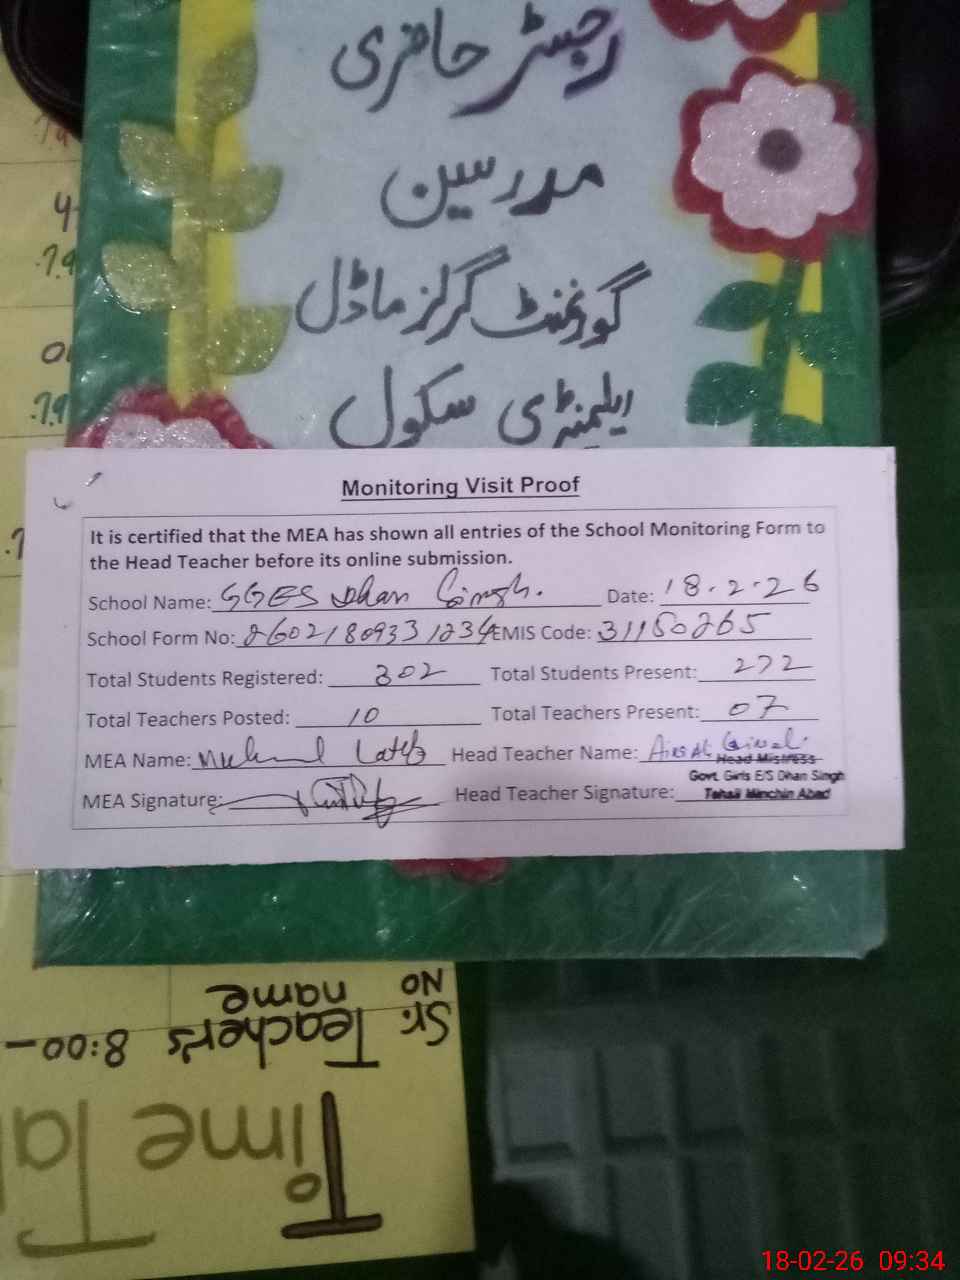 رجسٹر حاضری
مدرسین
گورنمنٹ گرلز ماڈل
ایلیمنٹری سکول
Monitoring Visit Proof
It is certified that the MEA has shown all entries of the School Monitoring Form to
the Head Teacher before its online submission.
School Name: GGES Dhan Singh. Date: 18.2.26
School Form No: 26021809331234 EMIS Code: 31150265
Total Students Registered: 302 Total Students Present: 272
Total Teachers Posted: 10 Total Teachers Present: 07
MEA Name: Head Teacher Name:
Head Mistress
Govt. Girls E/S Dhan Singh
MEA Signature: Head Teacher Signature:
Tehsil Minchin Abad
Time
Sr. Teacher's 8:00-
NO name
18-02-26 09:34